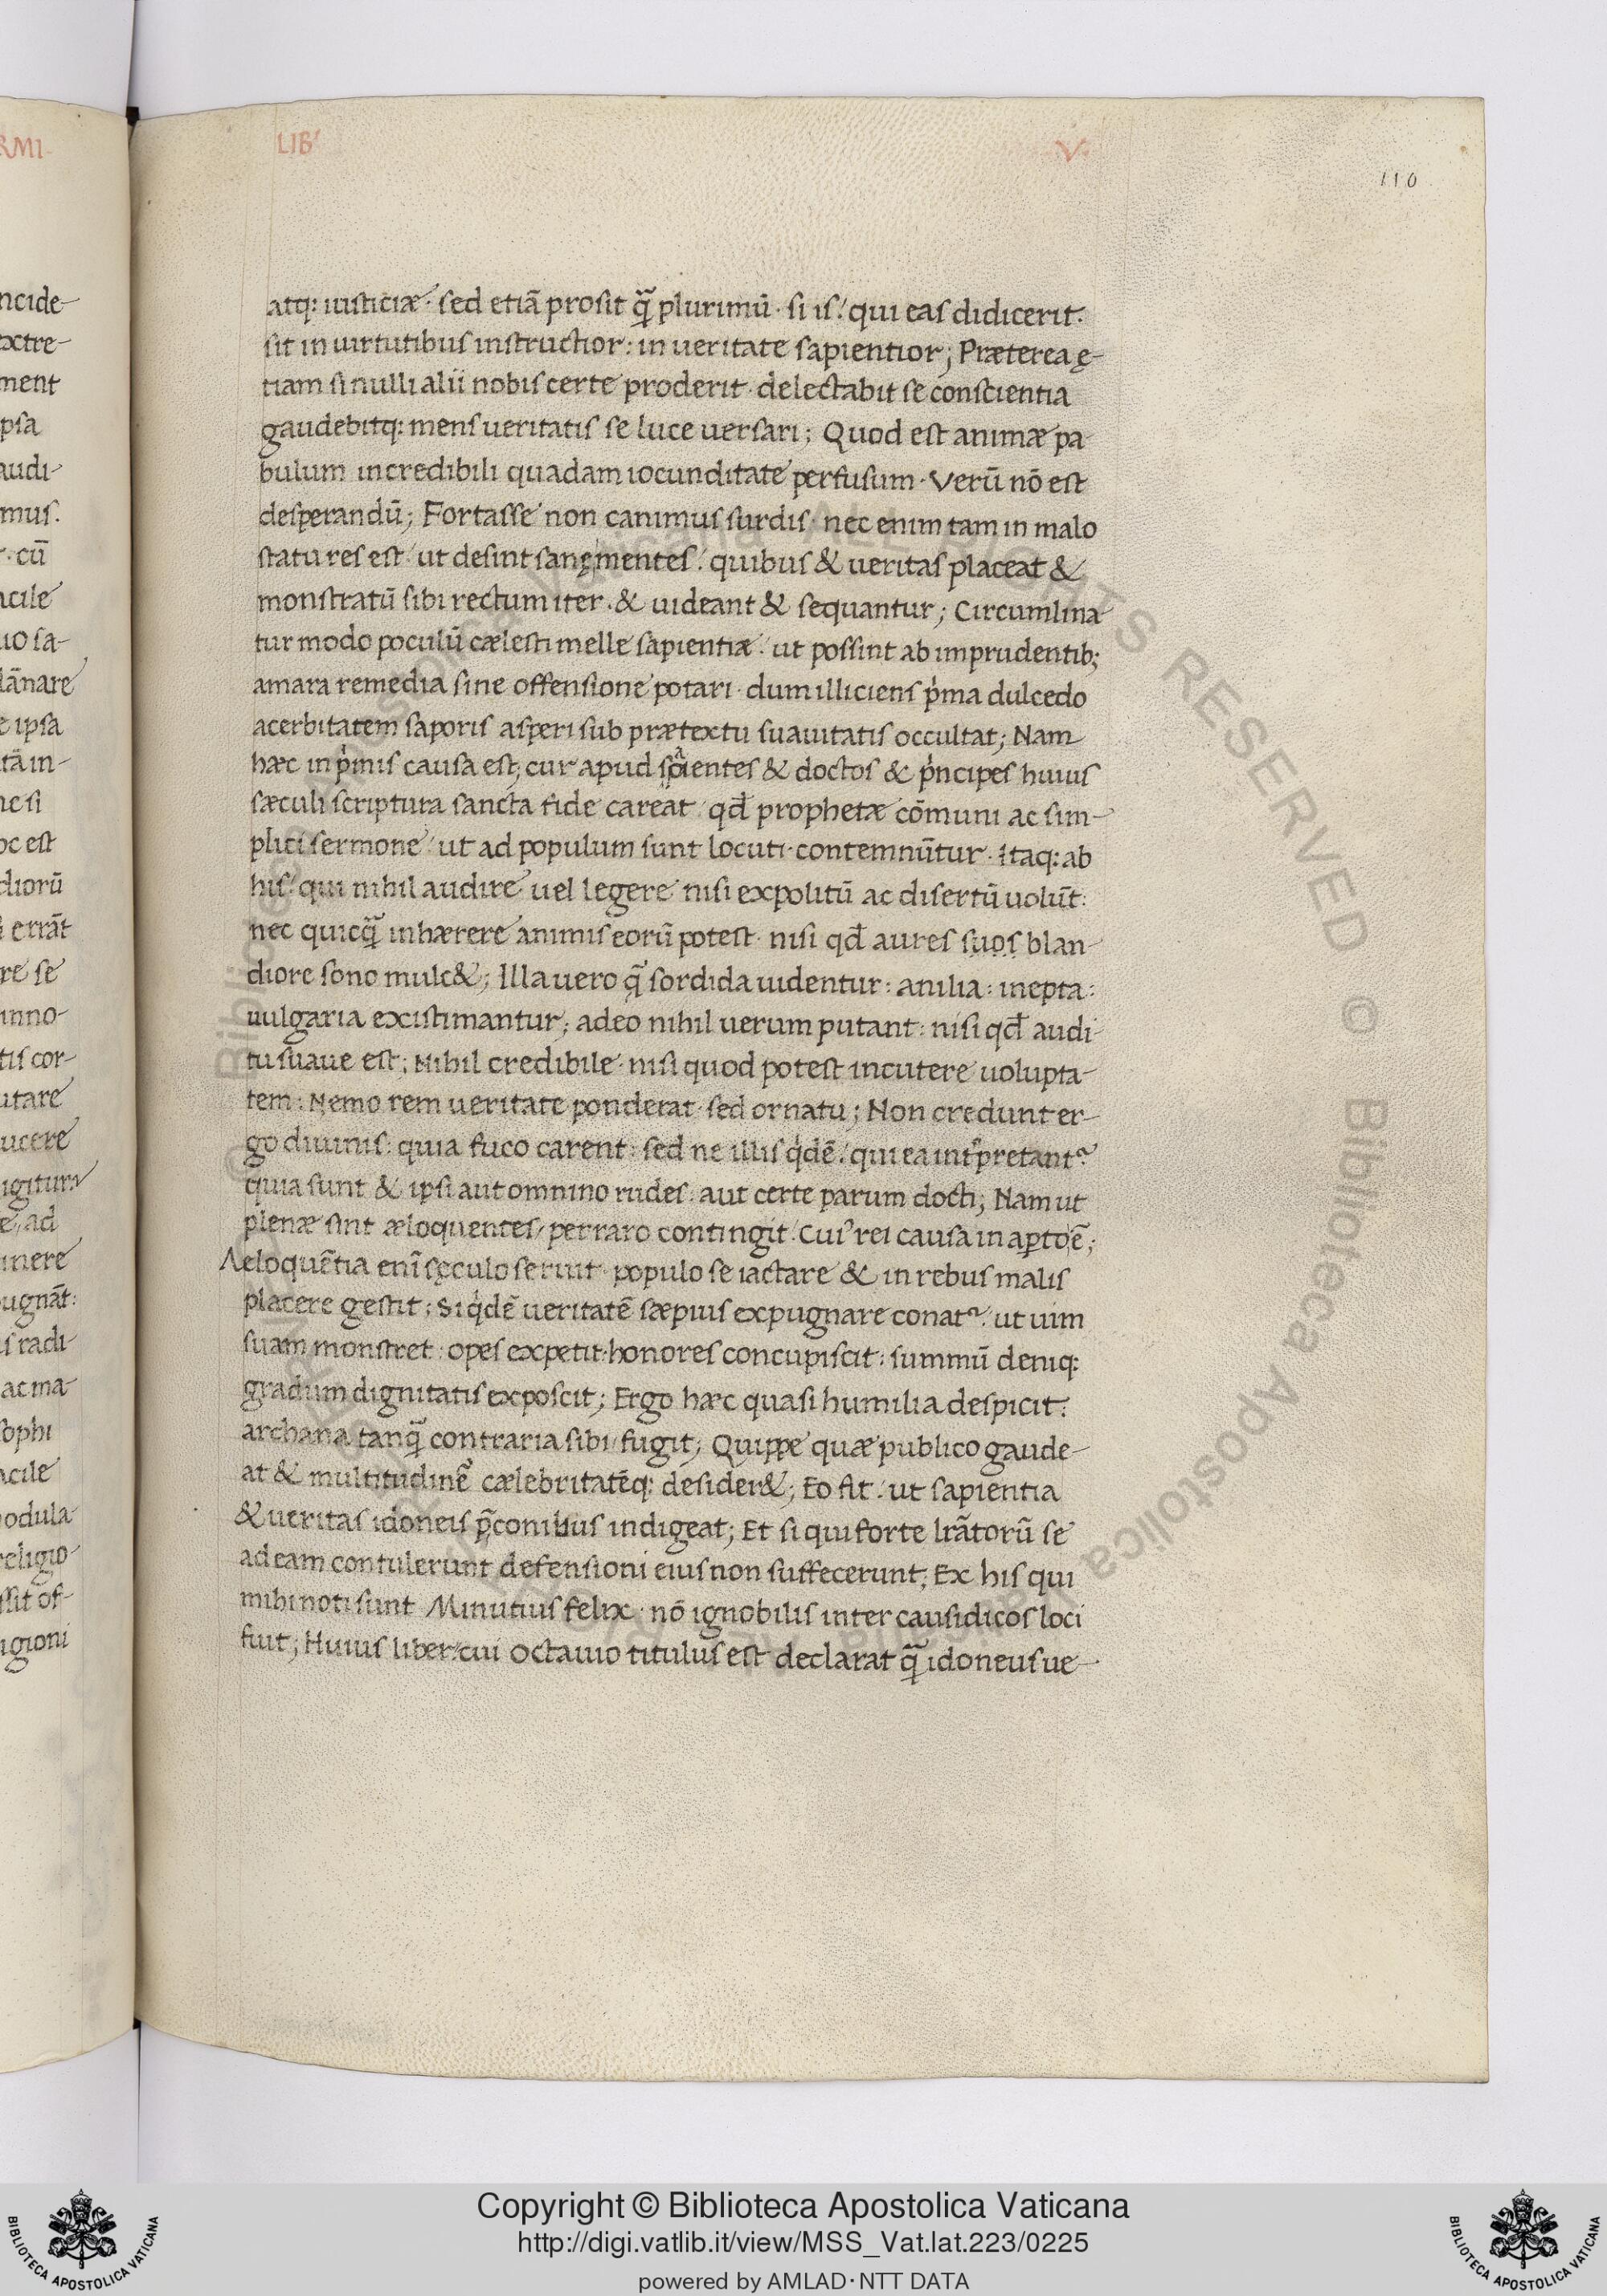 RMI
LIB'
V:
110
atq: iusticiæ · sed etiā prosit q̃ plurimū · si is! qui eas didicerit ·
sit in uirtutibus instructior: in ueritate sapientior; Præterea ę-
tiam si nulli alii nobis certe proderit · delectabit se conscientia
gaudebitq: mens ueritatis se luce uersari; Quod est animæ pa
bulum incredibili quadam iocunditate perfusum · Verū nō est
desperandū; Fortasse non canimus surdis · nec enim tam in malo
statu res est! ut desint sanę mentes! quibus & ueritas placeat &
monstratū sibi rectum iter · & uideant & sequantur; Circumlina
tur modo poculū cælesti melle sapientiæ! ut possint ab imprudentib;
amara remedia sine offensione potari · dum illiciens pͥma dulcedo
acerbitatem saporis asperi sub prætextu suauitatis occultat; Nam
hæc in pͥmis causa est; cur apud sᵃpientes & doctos & pͥncipes huius
sæculi scriptura sancta fide careat! qđ prophetæ cōmuni ac sim-
plici sermone! ut ad populum sunt locuti · contemnūtur · itaq: ab
his! qui nihil audire uel legere nisi expolitū ac disertū uolūt:
nec quicq̃ inhærere animis eorū potest · nisi qđ aures suos blan-
diore sono mulc&; Illa uero q̃ sordida uidentur: anilia: inepta:
uulgaria existimantur; adeo nihil uerum putant: nisi qđ audi
tu suaue est; Nihil credibile · nisi quod potest incutere uolupta-
tem: Nemo rem ueritate ponderat · sed ornatu; Non credunt er-
go diuinis: quia fuco carent: sed ne illis qͥdē! qui ea intꝰpretantᵘ
quia sunt & ipsi aut omnino rudes: aut certe parum docti; Nam ut
plenæ sint æloquentes/ perraro contingit! Cuiꝰ rei causa in apto ē;
Aeloquētia enī sęculo seruit · populo se iactare & in rebus malis
placere gestit; Siqͥdē ueritatē sæpius expugnare conatᵘ! ut uim
suam monstret: opes expetit: honores concupiscit: summū deniq:
gradum dignitatis exposcit; Ergo hæc quasi humilia despicit:
archana tanq̃ contraria sibi/ fugit; Quippe quæ publico gaude-
at & multitudinē cælebritatēq: desider&; Eo fit! ut sapientia
& ueritas idoneis p̄conibus indigeat; Et si qui forte lr̄atorū se
ad eam contulerunt defensioni eius non suffecerunt; Ex his qui
mihi noti sunt Minutius felix · nō ignobilis inter causidicos loci
fuit; Huius liber/ cui Octauio titulus est declarat q̃ idoneus ue-
Copyright © Biblioteca Apostolica Vaticana
http://digi.vatlib.it/view/MSS_Vat.lat.223/0225
powered by AMLAD·NTT DATA